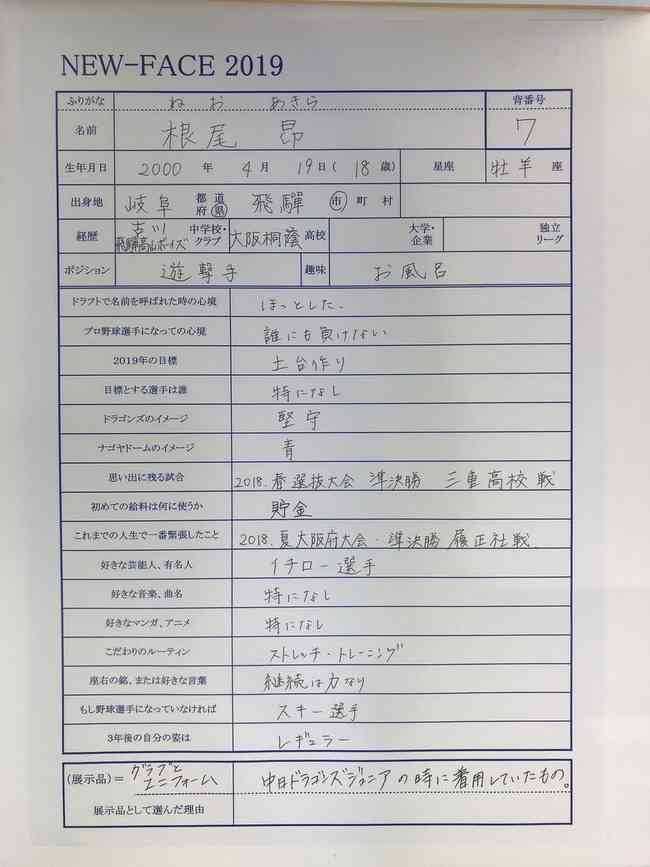 NEW-FACE 2019
ふりがな ねお あきら 背番号
名前 根尾 昂 7
生年月日 2000 年 4 月 19 日( 18 歳) 星座 牡羊 座
出身地 岐阜 都道府県 飛騨 市町村
経歴 古川 飛騨高山ボーイズ 中学校・クラブ 大阪桐蔭 高校 大学・企業 独立リーグ
ポジション 遊撃手 趣味 お風呂
ドラフトで名前を呼ばれた時の心境 ほっとした。
プロ野球選手になっての心境 誰にも負けない
2019年の目標 土台作り
目標とする選手は誰 特になし
ドラゴンズのイメージ 堅守
ナゴヤドームのイメージ 青
思い出に残る試合 2018.春選抜大会 準決勝 三重高校戦
初めての給料は何に使うか 貯金
これまでの人生で一番緊張したこと 2018.夏大阪府大会・準決勝 履正社戦
好きな芸能人、有名人 イチロー選手
好きな音楽、曲名 特になし
好きなマンガ、アニメ 特になし
こだわりのルーティン ストレッチ・トレーニング
座右の銘、または好きな言葉 継続は力なり
もし野球選手になっていなければ スキー選手
3年後の自分の姿は レギュラー
(展示品)= グラブとユニフォーム 中日ドラゴンズジュニアの時に着用していたもの。
展示品として選んだ理由